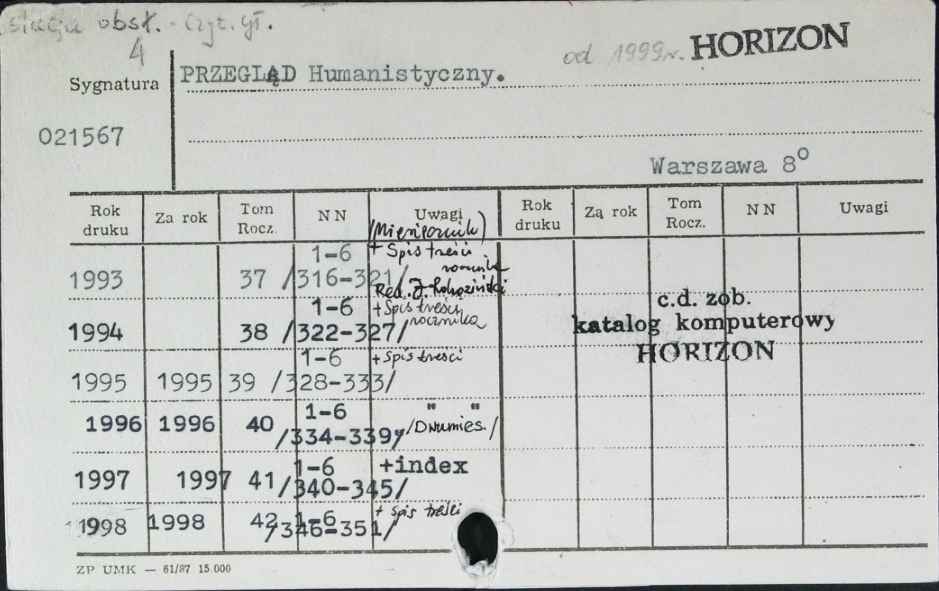 obsł. - Czyt. gł.
4
od 1999r. HORIZON
Sygnatura PRZEGLĄD Humanistyczny.
021567
Warszawa 8°
Rok druku Za rok Tom Rocz. N N Uwagi Rok druku Za rok Tom Rocz. N N Uwagi
/Miesięcznik/
1993 37 1-6 /316-321/ + Spis treści rocznika
Red. J.
1994 38 1-6 /322-327/ + Spis treści rocznika
1995 1995 39 1-6 /328-333/ + Spis treści
1996 1996 40 1-6 /334-339/ " " /Dwumies./
1997 1997 41 1-6 /340-345/ +index
1998 1998 42 1-6 /346-351/ + spis treści
c.d. zob.
katalog komputerowy
HORIZON
ZP UMK — 61/87 15.000